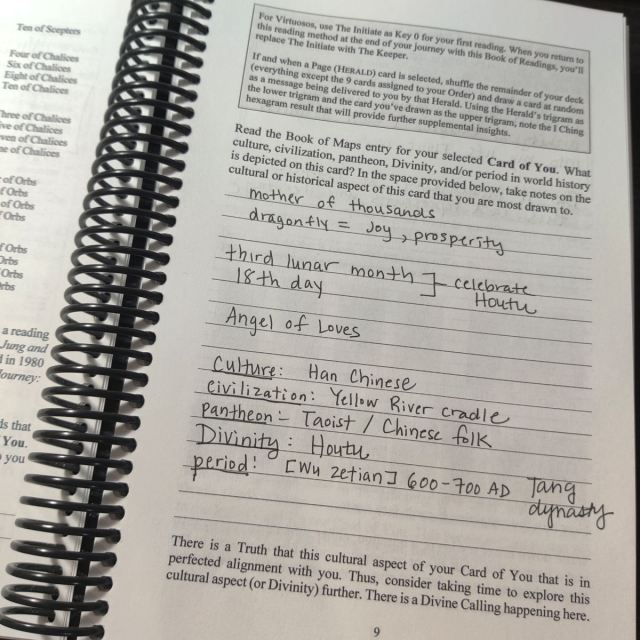 Ten of Scepters
Four of Chalices
Six of Chalices
Eight of Chalices
Ten of Chalices
Three of Chalices
ive of Chalices
ven of Chalices
ne of Chalices
of Orbs
f Orbs
of Orbs
Orbs
f Orbs
Orbs
Orbs
rbs
a reading
Jung and
d in 1980
Journey:
ds that
You.
o you
For Virtuosos, use The Initiate as Key 0 for your first reading. When you return to
this reading method at the end of your journey with this Book of Readings, you'll
replace The Initiate with The Keeper.
If and when a Page (HERALD) card is selected, shuffle the remainder of your deck
(everything except the 9 cards assigned to your Order) and draw a card at random
as a message being delivered to you by that Herald. Using the Herald's trigram as
the lower trigram and the card you've drawn as the upper trigram, note the I Ching
hexagram result that will provide further supplemental insights.
Read the Book of Maps entry for your selected Card of You. What
culture, civilization, pantheon, Divinity, and/or period in world history
is depicted on this card? In the space provided below, take notes on the
cultural or historical aspect of this card that you are most drawn to.
mother of thousands
dragonfly = joy, prosperity
third lunar month ] celebrate
18th day Houtu
Angel of Loves
Culture: Han Chinese
civilization: Yellow River cradle
pantheon: Taoist / Chinese folk
Divinity: Houtu
period: [Wu zetian] 600-700 AD Tang
dynasty
There is a Truth that this cultural aspect of your Card of You that is in
perfected alignment with you. Thus, consider taking time to explore this
cultural aspect (or Divinity) further. There is a Divine Calling happening here.
9